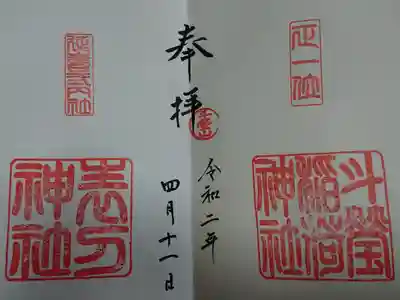 正一位
斗瑩
稲荷
神社
奉拝
令和二年
四月十一日
延喜式内社
表刀
神社